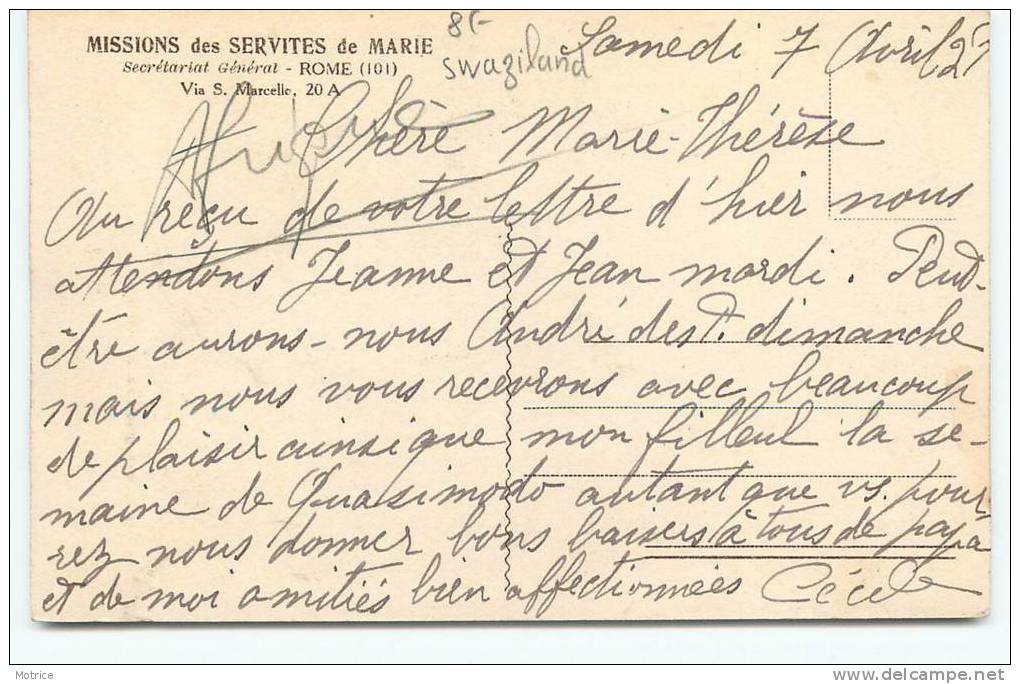 MISSIONS des SERVITES de MARIE
Secrétariat Général - ROME (101)
Via S. Marcello, 20 A
8/-
Swaziland
Samedi 7 Avril 27
Afrique
Chère Marie-Thérèse
Au reçu de votre lettre d'hier nous
attendons Jeanne et Jean mardi. Peut-
être aurons-nous André des P. dimanche
mais nous vous recevrons avec beaucoup
de plaisir ainsi que mon filleul la se-
maine de Quasimodo autant que vs. pour
rez nous donner bons baisers à tous de papa
et de moi amitiés bien affectionnées Cécile
Motrice
delcampe.net